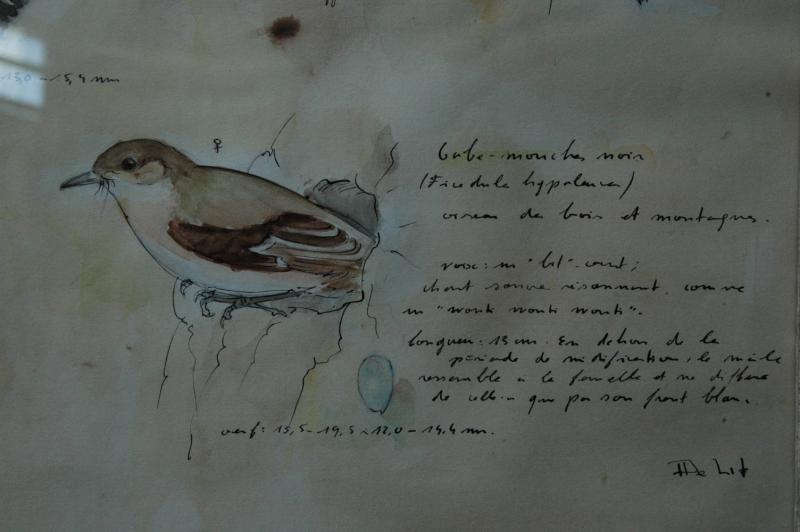 13,0 - 15,4 mm
♀
Gobe-mouches noir
(Ficedula hypoleuca)
oiseau des bois et montagnes.
voix: un "bit" court;
chant sonore résonnant, comme
un "wouti wouti wouti".
longueur: 13 cm. En dehors de la
période de nidification, le mâle
ressemble à la femelle et ne diffère
de celle-ci que par son front blanc.
oeuf: 15,5-19,5 x 12,0-14,4 mm.